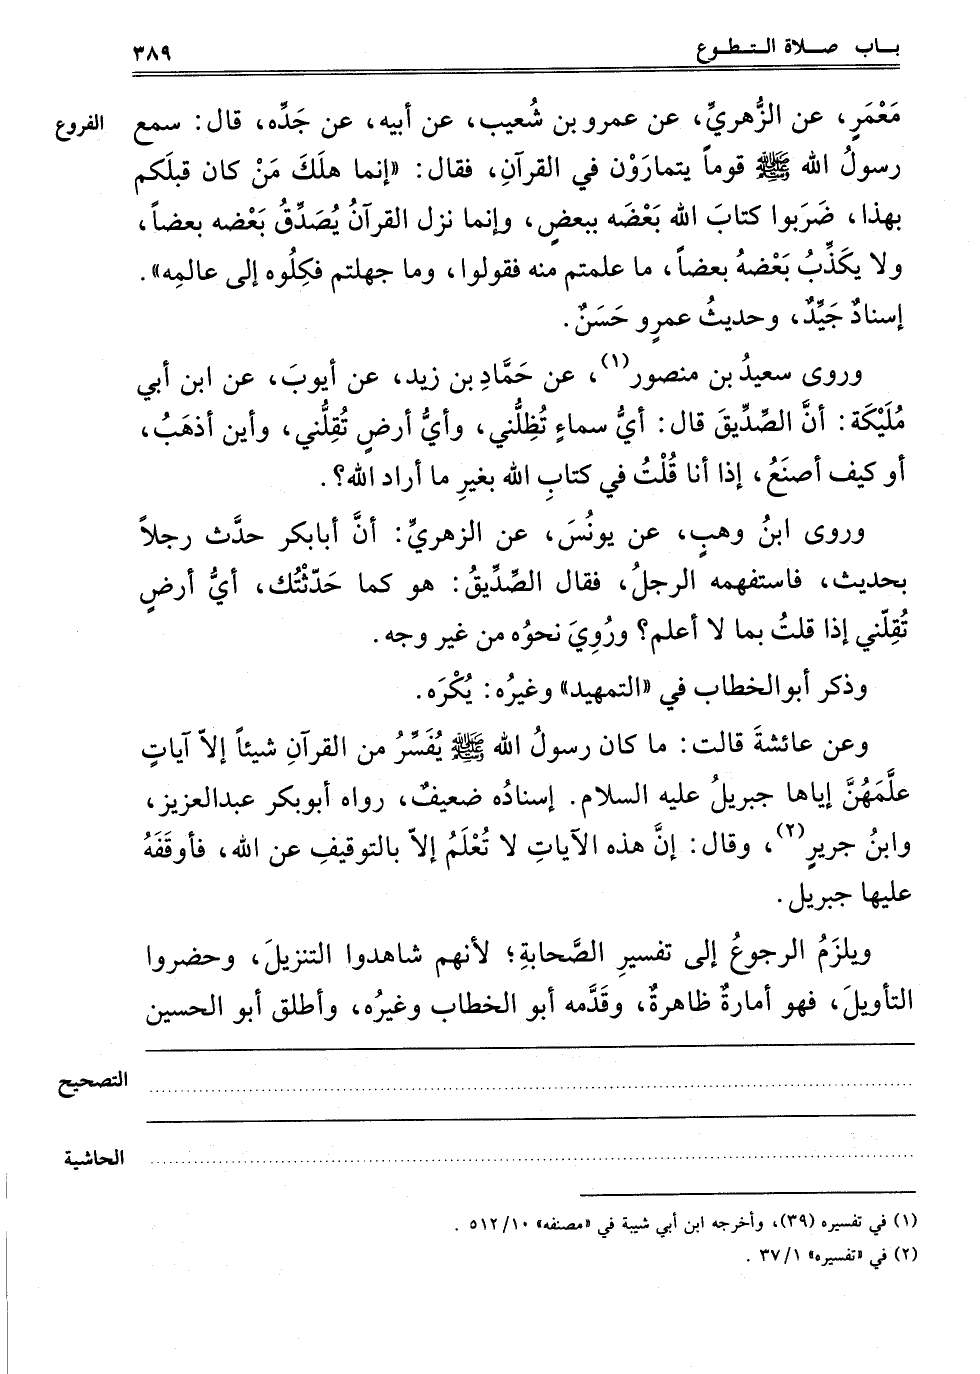 بـــاب صـــلاة الـتـطـوع ٣٨٩
مَعْمَرٍ، عن الزُّهريِّ، عن عمرو بن شُعيب، عن أبيه، عن جَدِّه، قال: سمع
الفروع
رسولُ الله ﷺ قوماً يتمارَوْن في القرآنِ، فقال: «إنما هلَكَ مَنْ كان قبلَكم
بهذا، ضَرَبوا كتابَ الله بَعْضَه ببعضٍ، وإنما نزل القرآنُ يُصَدِّقُ بَعْضه بعضاً،
ولا يكَذِّبُ بَعْضهُ بعضاً، ما علمتم منه فقولوا، وما جهلتم فكِلُوه إلى عالمِه».
إسنادٌ جَيِّدٌ، وحديثُ عمرٍو حَسَنٌ.
وروى سعيدُ بن منصور(١)، عن حَمَّادِ بن زيد، عن أيوبَ، عن ابن أبي
مُلَيْكَة: أنَّ الصِّدِّيقَ قال: أيُّ سماءٍ تُظِلُّني، وأيُّ أرضٍ تُقِلُّني، وأين أذهَبُ،
أو كيف أصنَعُ، إذا أنا قُلْتُ في كتابِ الله بغيرِ ما أراد الله؟.
وروى ابنُ وهبٍ، عن يونُسَ، عن الزهريِّ: أنَّ أبابكر حدَّث رجلاً
بحديث، فاستفهمه الرجلُ، فقال الصِّدِّيقُ: هو كما حَدّثْتُك، أيُّ أرضٍ
تُقِلّني إذا قلتُ بما لا أعلم؟ ورُوِيَ نحوُه من غير وجه.
وذكر أبوالخطاب في «التمهيد» وغيرُه: يُكْرَه.
وعن عائشةَ قالت: ما كان رسولُ الله ﷺ يُفَسِّرُ من القرآنِ شيئاً إلاّ آياتٍ
علَّمَهُنَّ إياها جبريلُ عليه السلام. إسنادُه ضعيفٌ، رواه أبوبكر عبدالعزيز،
وابنُ جريرٍ(٢)، وقال: إنَّ هذه الآياتِ لا تُعْلَمُ إلاّ بالتوقيفِ عن الله، فأوقَفَهُ
عليها جبريل.
ويلزَمُ الرجوعُ إلى تفسيرِ الصَّحابةِ؛ لأنهم شاهدوا التنزيلَ، وحضروا
التأويلَ، فهو أمارةٌ ظاهرةٌ، وقَدَّمه أبو الخطاب وغيرُه، وأطلق أبو الحسين
التصحيح
الحاشية
(١) في تفسيره (٣٩)، وأخرجه ابن أبي شيبة في «مصنفه» ٥١٢/١٠ .
(٢) في «تفسيره» ٣٧/١ .